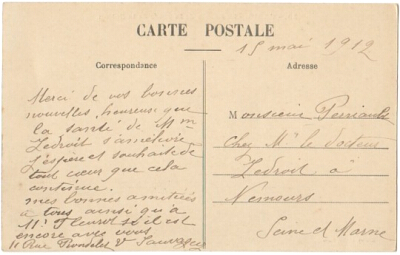 CARTE POSTALE
15 mai 1912
Correspondance
Adresse
Merci de vos bonnes
nouvelles, heureux que
la santé de Mme
Ledroit s'améliore
j'espère et souhaite de
tout cœur que cela
continue.
mes bonnes amitiés
à tous ainsi qu'à
Mr Fleurot s'il est
encore avec vous
11 Rue Rondelet
Monsieur
chez Mr le docteur
Ledroit à
Nemours
Seine et Marne